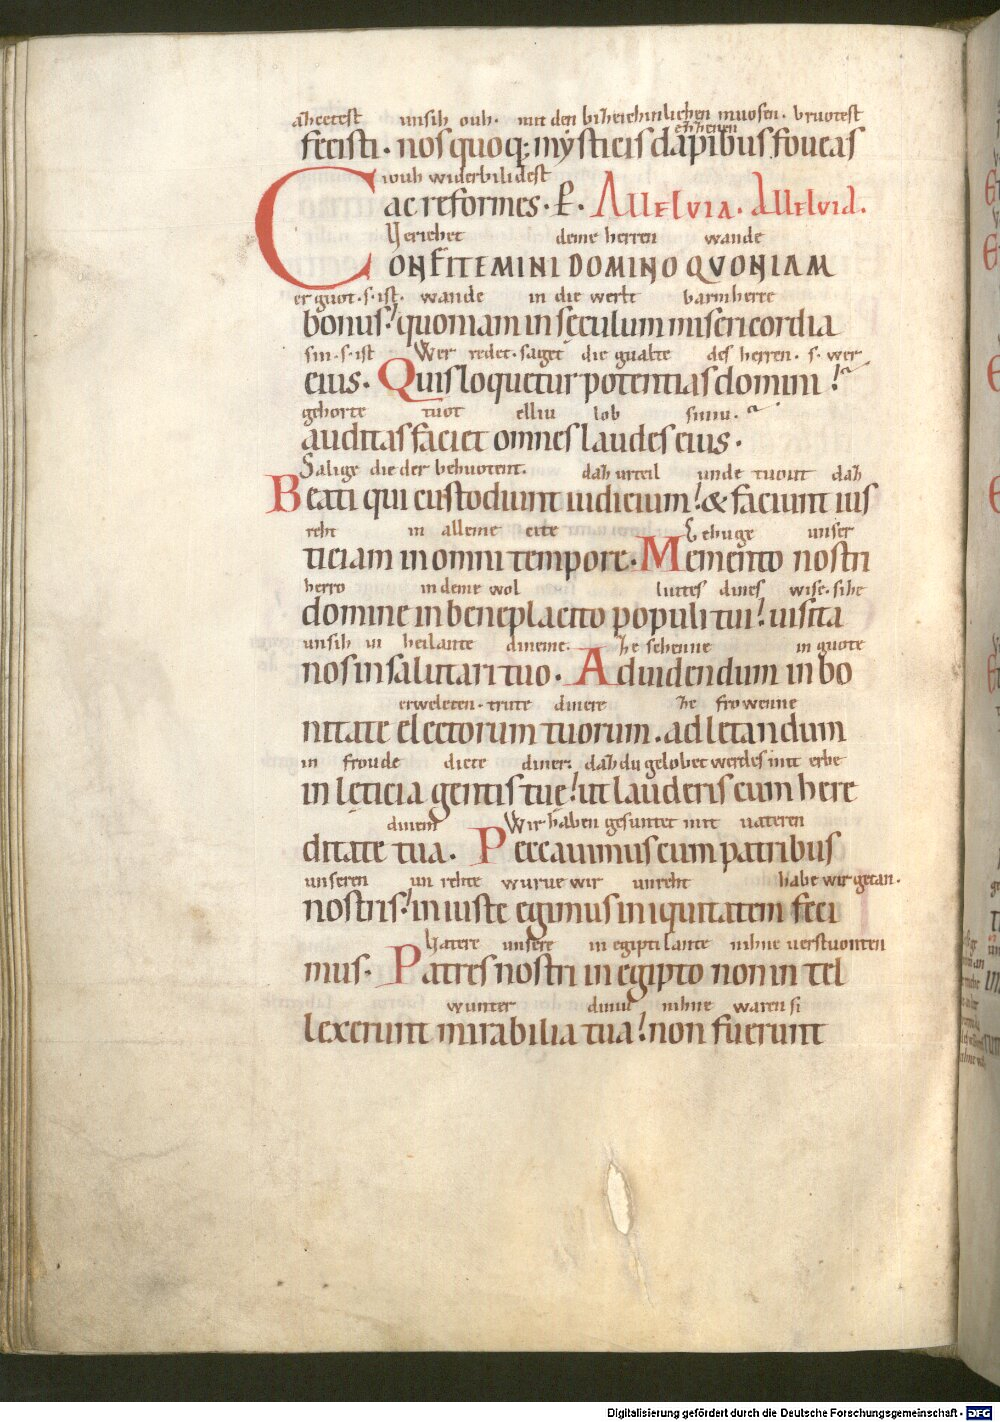 ahectest unsih ouh. mit den biheichinlichen muosen. bruotest
ezzhenen
fecisti. nos quoq; mysticis dapibus foueas
iouh widerbilidest
ac reformes. P. Allelvia. Allelvia.
Heriehet deme herren wande
CONFITEMINI DOMINO QVONIAM
er guot .s. ist. wande in die werlt barmherce
bonus! quoniam in seculum misericordia
sin .s. ist Wer redet. saget die gualte des herren. s. wer
eius. Quis loquetur potentias domini!
gehorte tuot elliu lob siniu.
auditas faciet omnes laudes eius.
Salige die der behuotent. dah urteil unde tuont dah
Beati qui custodiunt iudicium! & faciunt ius
reht in alleme cite
ticiam in omni tempore. Memento nostri
Gehuge unser
herro in deme wol liutes dines wise. sihe
domine in beneplacito populi tui! uisita
unsih in heilante dineme. he sehenne in guote
nos in salutari tuo. Ad uidendum in bo
erweleten. trute dinere he frowenne
nitate electorum tuorum. ad letandum
in froude diete diner. dah du gelobet werdes mit erbe
in leticia gentis tue! ut lauderis cum here
dinem Wir haben gesuntet mit uateren
ditate tua. Peccauimus cum patribus
unseren un rehte wurue wir unreht habe wir getan.
nostris! iniuste egimus iniquitatem feci
Uatere unsere in egiptilante nihne uerstuonten
mus. Patres nostri in egipto non intel
wunter diniu nihne waren si
lexerunt mirabilia tua! non fuerunt
Digitalisierung gefördert durch die Deutsche Forschungsgemeinschaft - DFG